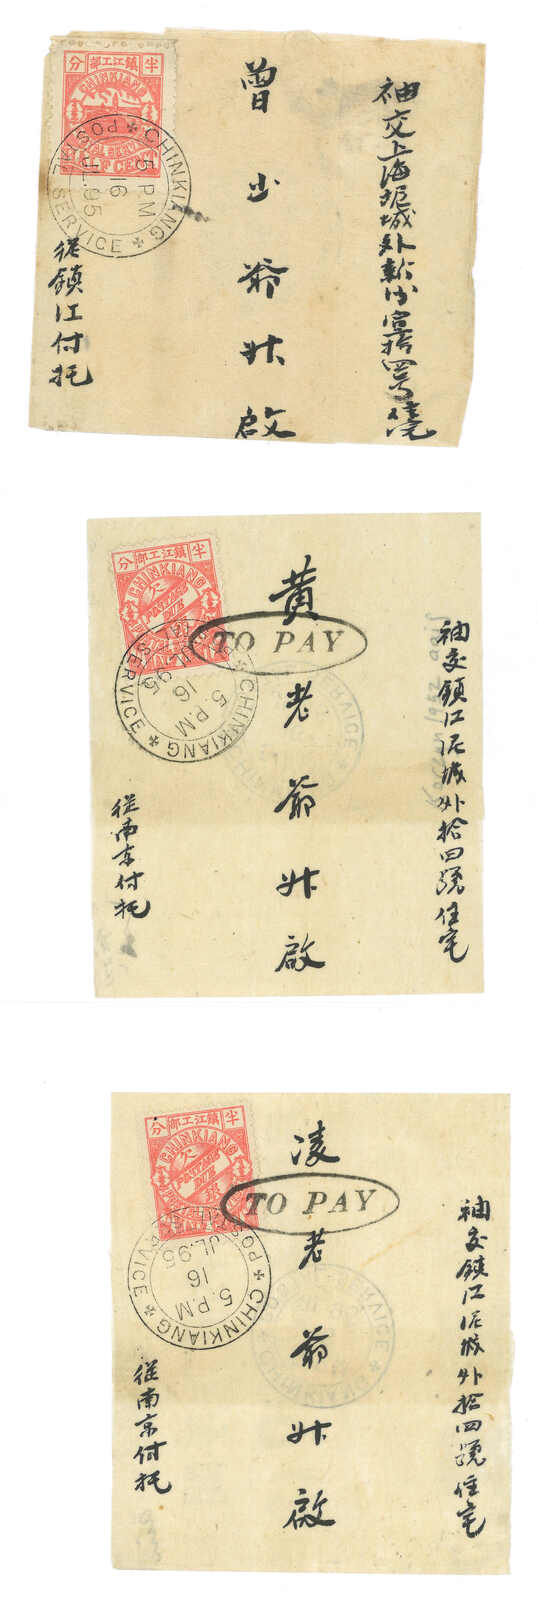 半 鎮江工部 分
CHINKIANG
CHINKIANG POSTAL SERVICE
5 P.M
16
JL.95
袖交上海坭城外新沙宣拾四号住宅
曾少爺升啟
從鎮江付托
半 鎮江工部 分
CHINKIANG
欠
POSTAGE DUE
TO PAY
CHINKIANG
SERVICE
5 P.M
16
JL.95
袖交鎮江泥城外拾四號住宅
黄老爺升啟
從南京付托
半 鎮江工部 分
CHINKIANG
欠
POSTAGE DUE
銀
TO PAY
CHINKIANG
POSTAL SERVICE
5 P.M
16
JL.95
袖交鎮江泥城外拾四號住宅
凌老爺升啟
從南京付托